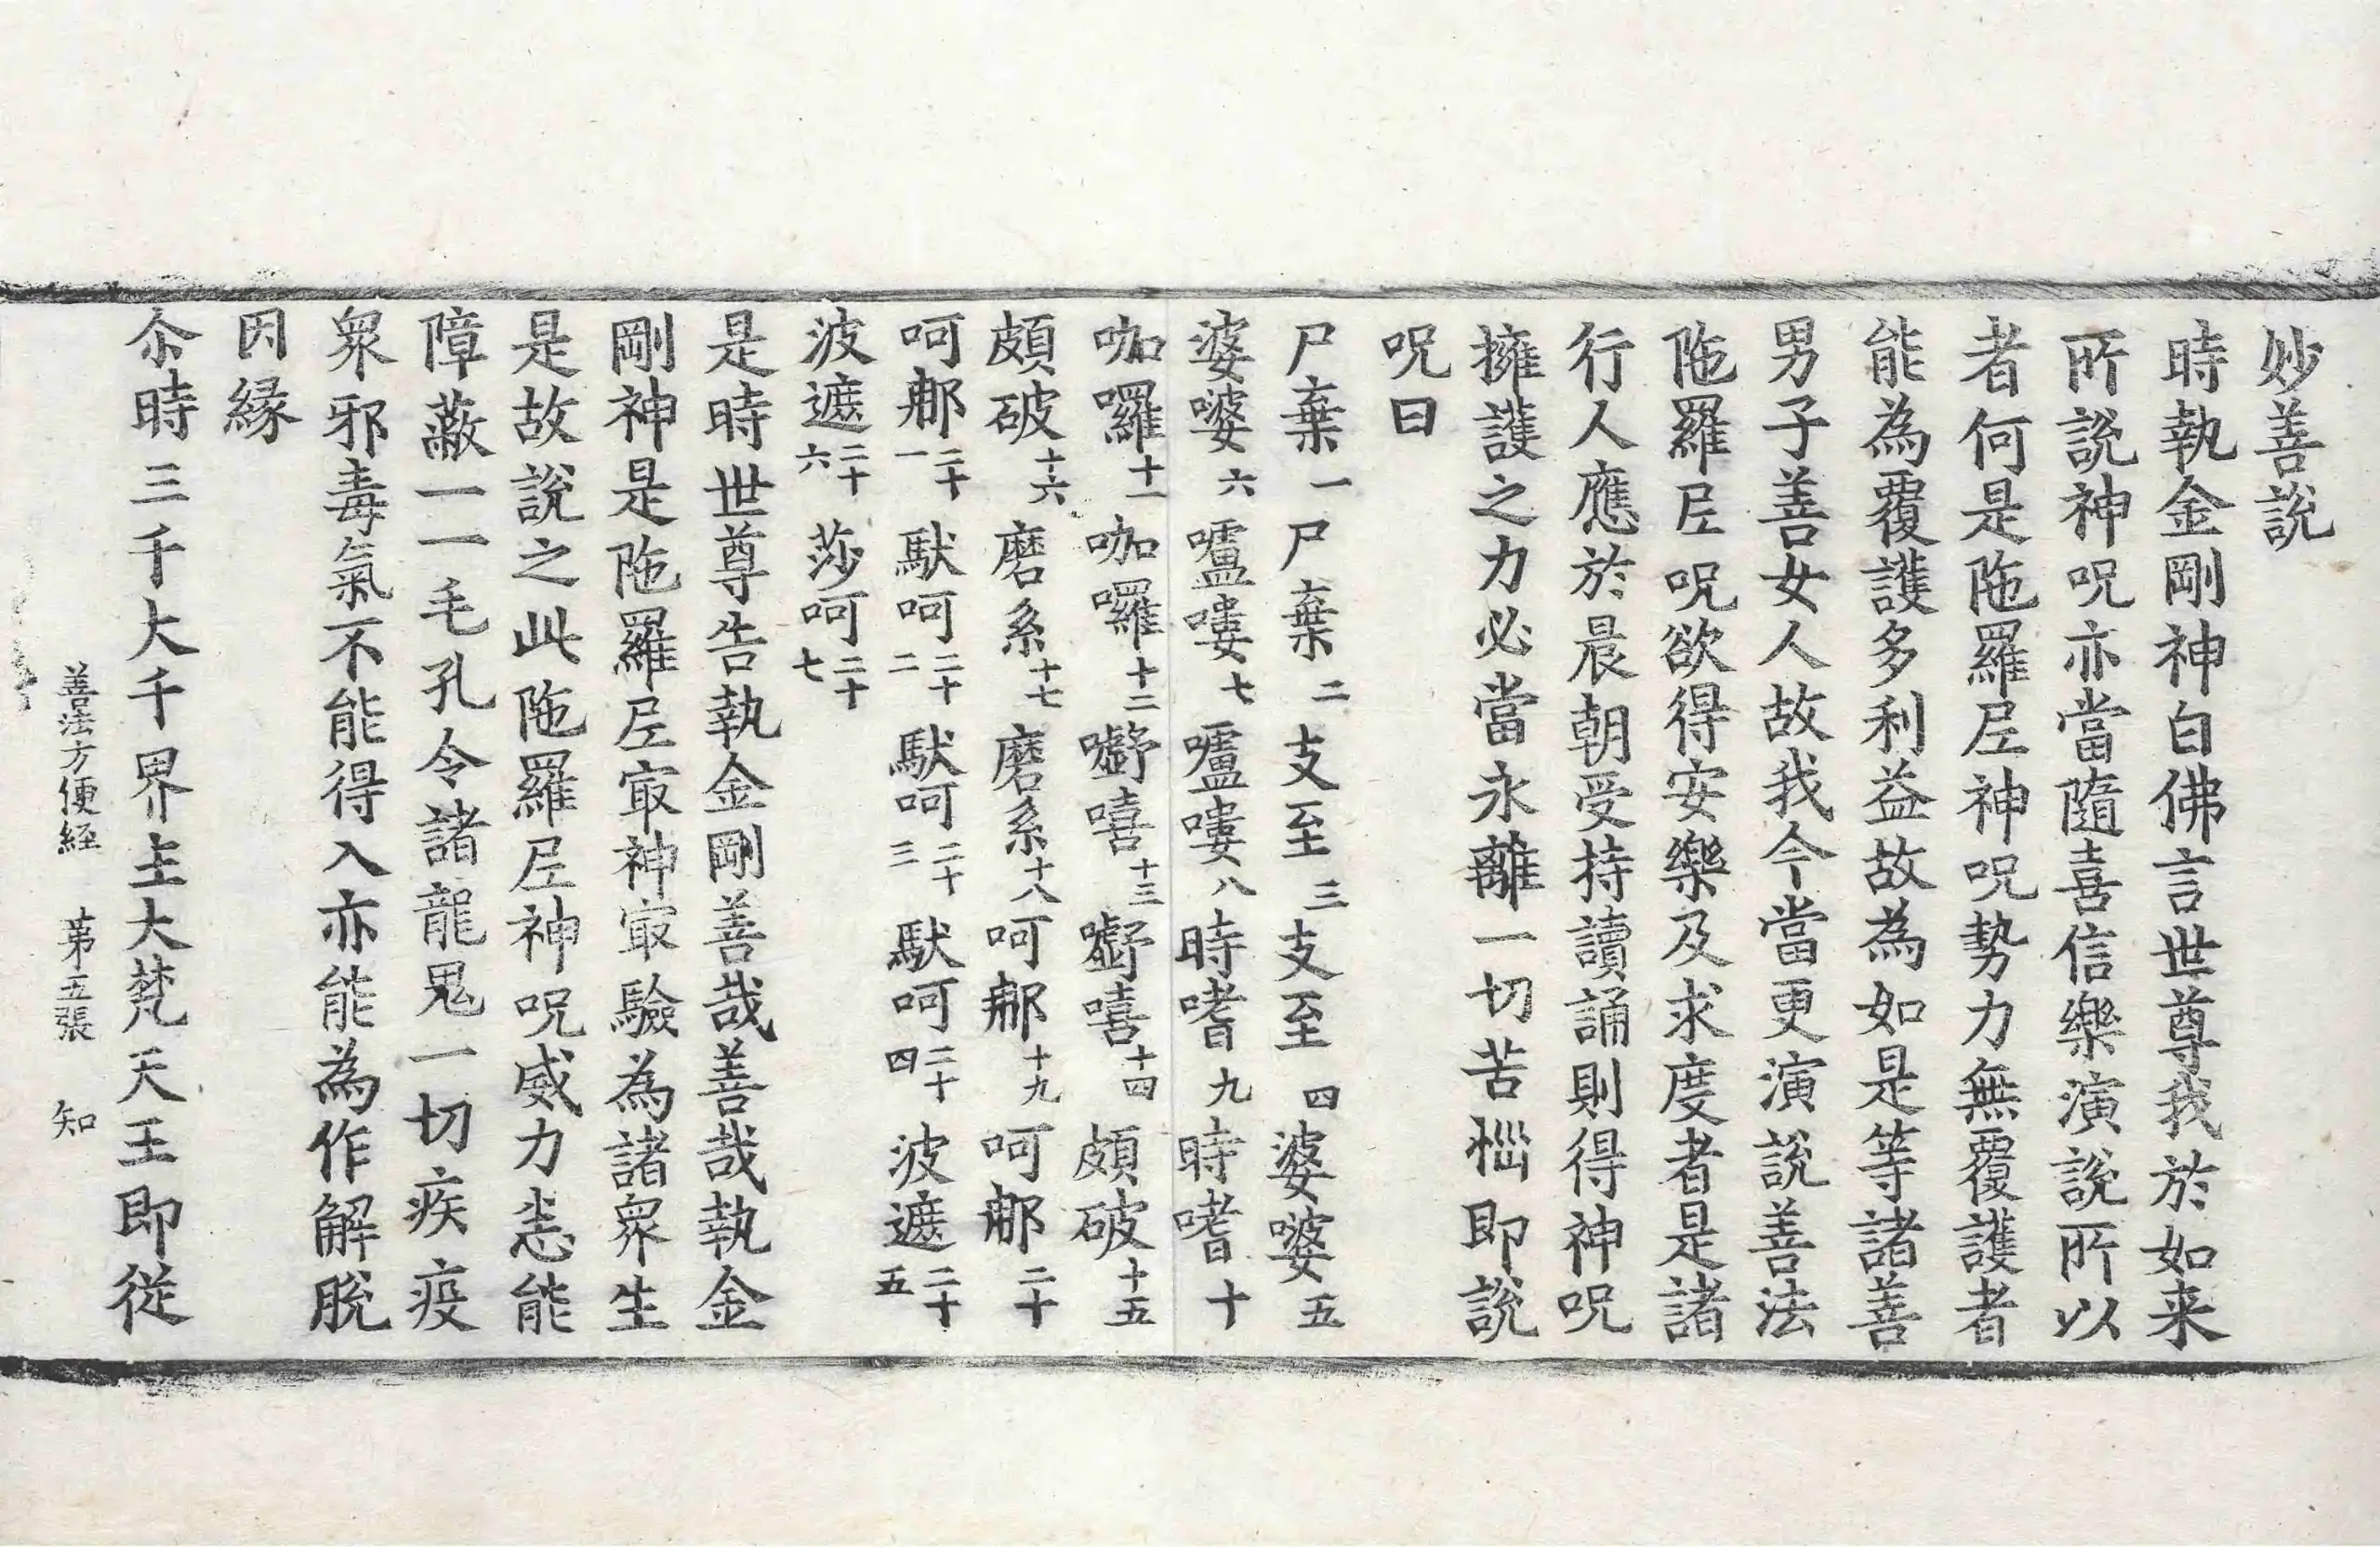 妙善說
時執金剛神白佛言世尊我於如来
所說神呪亦當隨喜信樂演說所以
者何是陁羅𡰱神呪勢力無覆護者
能為覆護多利益故為如是等諸善
男子善女人故我今當更演說善法
陁羅𡰱呪欲得安樂及求度者是諸
行人應於晨朝受持讀誦則得神呪
擁護之力必當永離一切苦惱即說
呪曰
尸棄一尸棄二支至三支至四婆㗑五
婆㗑六嚧嘍七嚧嘍八時嗜九時嗜十
咖囉十一咖囉十二㘔嘻十三㘔嘻十四頗破十五
頗破十六磨系十七磨系十八呵𨚗十九呵𨚗二十
呵𨚗二十一䭾呵二十二䭾呵二十三䭾呵二十四波遮二十五
波遮二十六莎呵二十七
是時世尊告執金剛善哉善哉執金
剛神是陁羅𡰱㝡神㝡驗為諸衆生
是故說之此陁羅𡰱神呪威力恙能
障蔽一一毛孔令諸龍鬼一切疾疫
衆邪毒氣不能得入亦能為作解脫
因緣
尒時三千大千界主大梵天王即從
善法方便經　第五張　知